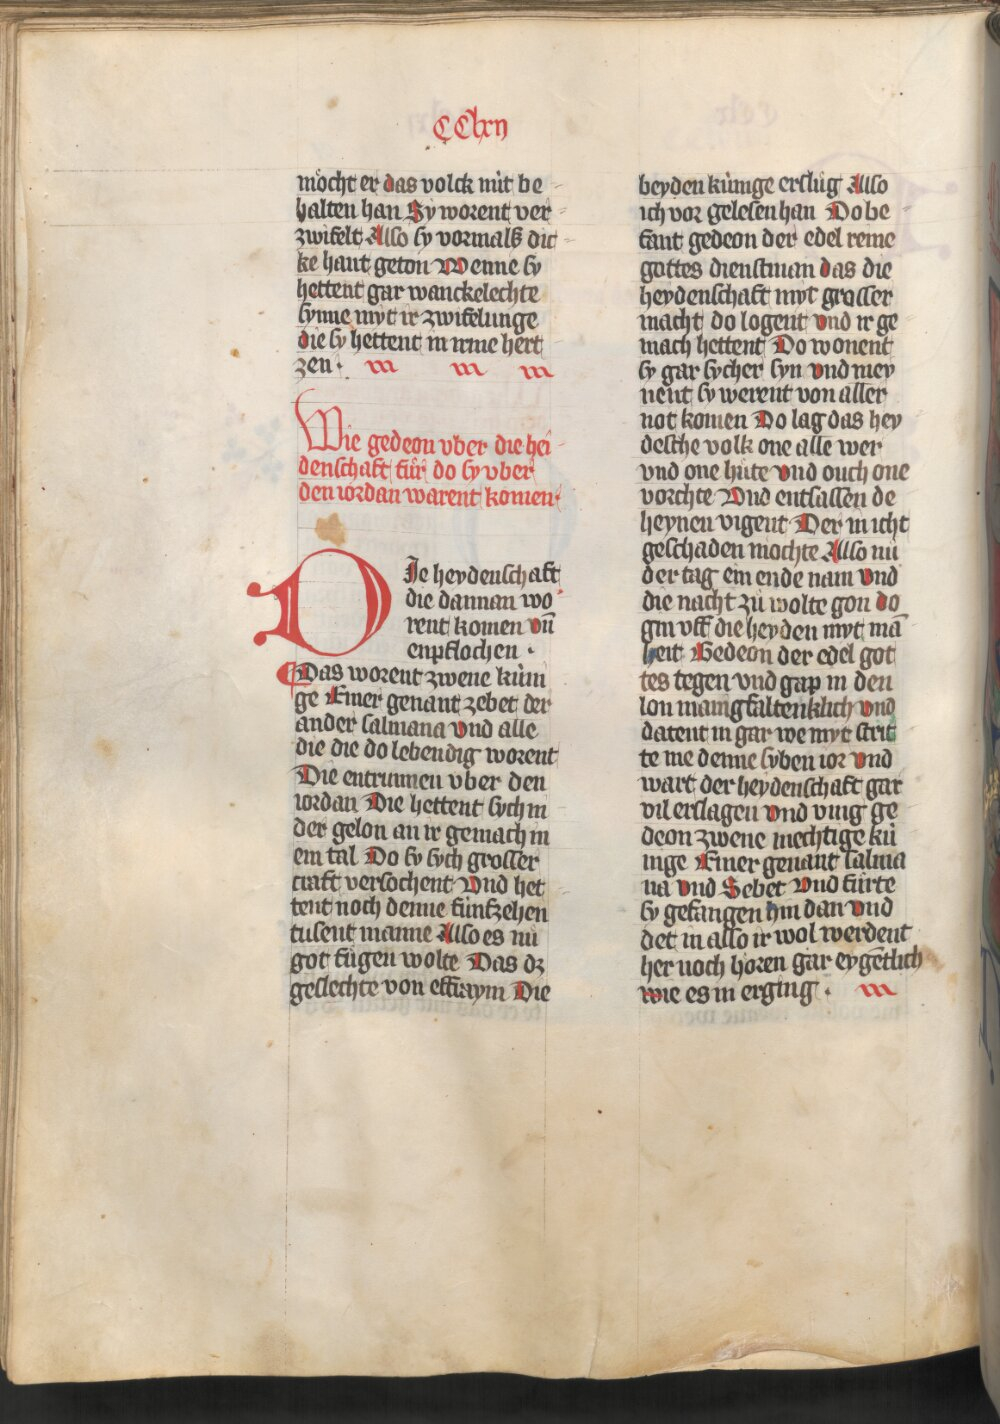 CClxij
möcht er das volck nüt be
halten han Sy worent ver
zwifelt Also sy vormalß dic
ke hant geton Wenne sy
hettent gar wanckelechte
synne myt ir zwifelunge
die sy hettent in irme hert
zen.
Wie gedeon vber die hei
denschaft für do sy vber
den iordan warent komen
DJe heydenschaft
die dannan wo
rent komen vn̄
enpflochen .
Das worent zwene kúni
ge Einer genant zebet der
ander salmana vnd alle
die die do lebendig worent
Die entrunnen vber den
iordan Die hettent sych in
der gelon an ir gemach in
ein tal Do sy sych grosser
craft versochent Vnd het
tent noch denne fünfzehen
tusent manne Also es nü
got fügen wolte Das dz
geslechte von effraym Die
beyden künige erslüg Also
ich vor gelesen han Do be
fant gedeon der edel reine
gottes dienstman das die
heydenschaft myt grosser
macht do logent vnd ir ge
mach hettent Do wonent
sy gar sycher syn vnd mey
nent sy werent von aller
not komen Do lag das hey
desche volk one alle wer
vnd one hüte vnd ouch one
vorchte Vnd entsassen de
heynen vigent Der in icht
geschaden mochte Also nü
der tag ein ende nam vnd
die nacht zü wolte gon do
gin vff die heyden myt mā
heit Gedeon der edel got
tes tegen vnd gap in den
lon manigfaltenklich vnd
datent in gar we myt strit
te me denne syben ior vnd
wart der heydenschaft gar
vil erslagen vnd ving ge
deon zwene mechtige kü
nige Einer genant salma
na vnd Sebet Vnd fürte
sy gefangen hin dan vnd
det in also ir wol werdent
her noch horen gar eygētlich
wie es in erging .